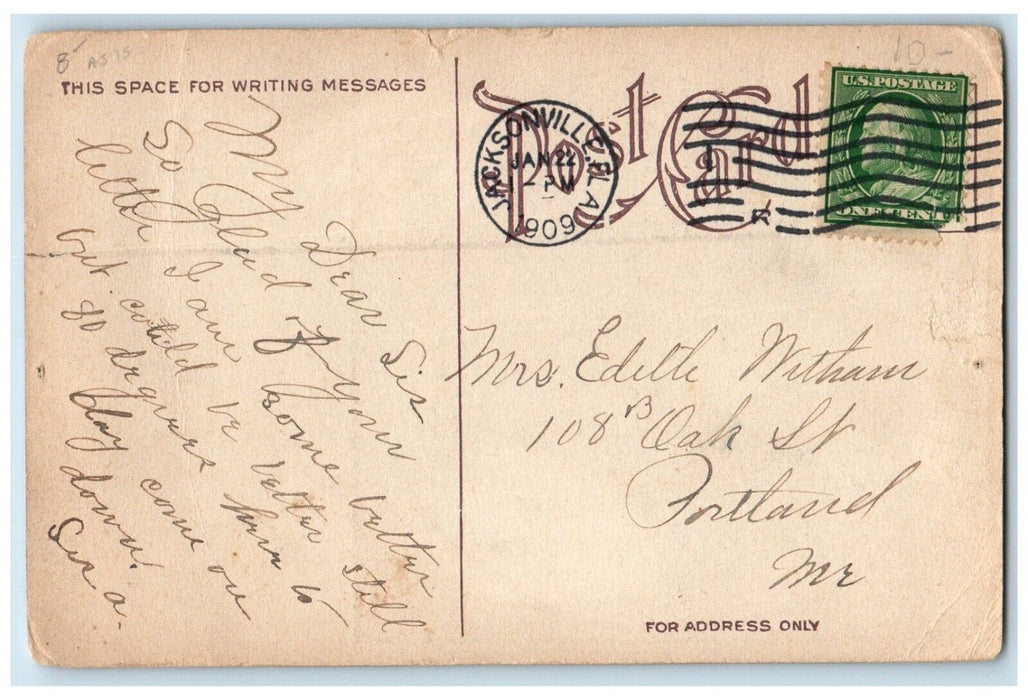 8- AS IS
10-
THIS SPACE FOR WRITING MESSAGES
Post Card
JACKSONVILLE, FLA
JAN 22
1 - PM
1909
U.S. POSTAGE
ONE CENT
My Dear Sis
So Glad of your
little some better
I am better still
but could be here to
80 degrees come on
day down.
Sis a.
Mrs. Edith Witham
108 B Oak St
Portland
Me
FOR ADDRESS ONLY